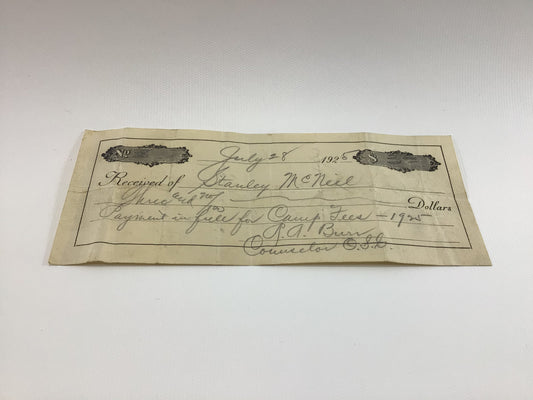 No.
July 28 1925 $
Received of Stanley McNeil
Three and no/100 Dollars
Payment in full for Camp Fees - 1925
R.A. Burr
Counselor